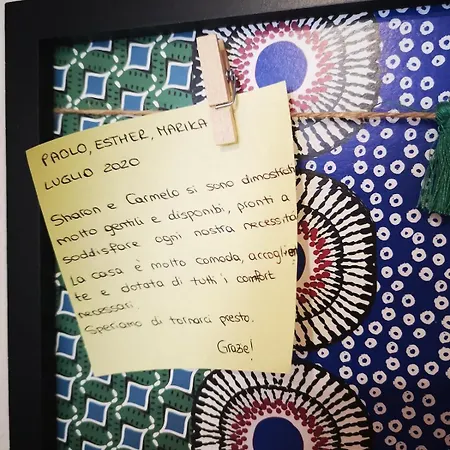 PAOLO, ESTHER, MARIKA
LUGLIO 2020
Sharon e Carmelo si sono dimostrati
molto gentili e disponibi, pronti a
soddisfare ogni nostra necessità.
La casa è molto comoda, accoglien
te e dotata di tutti i comfort
necessari.
Speriamo di tornarci presto.
Grazie!